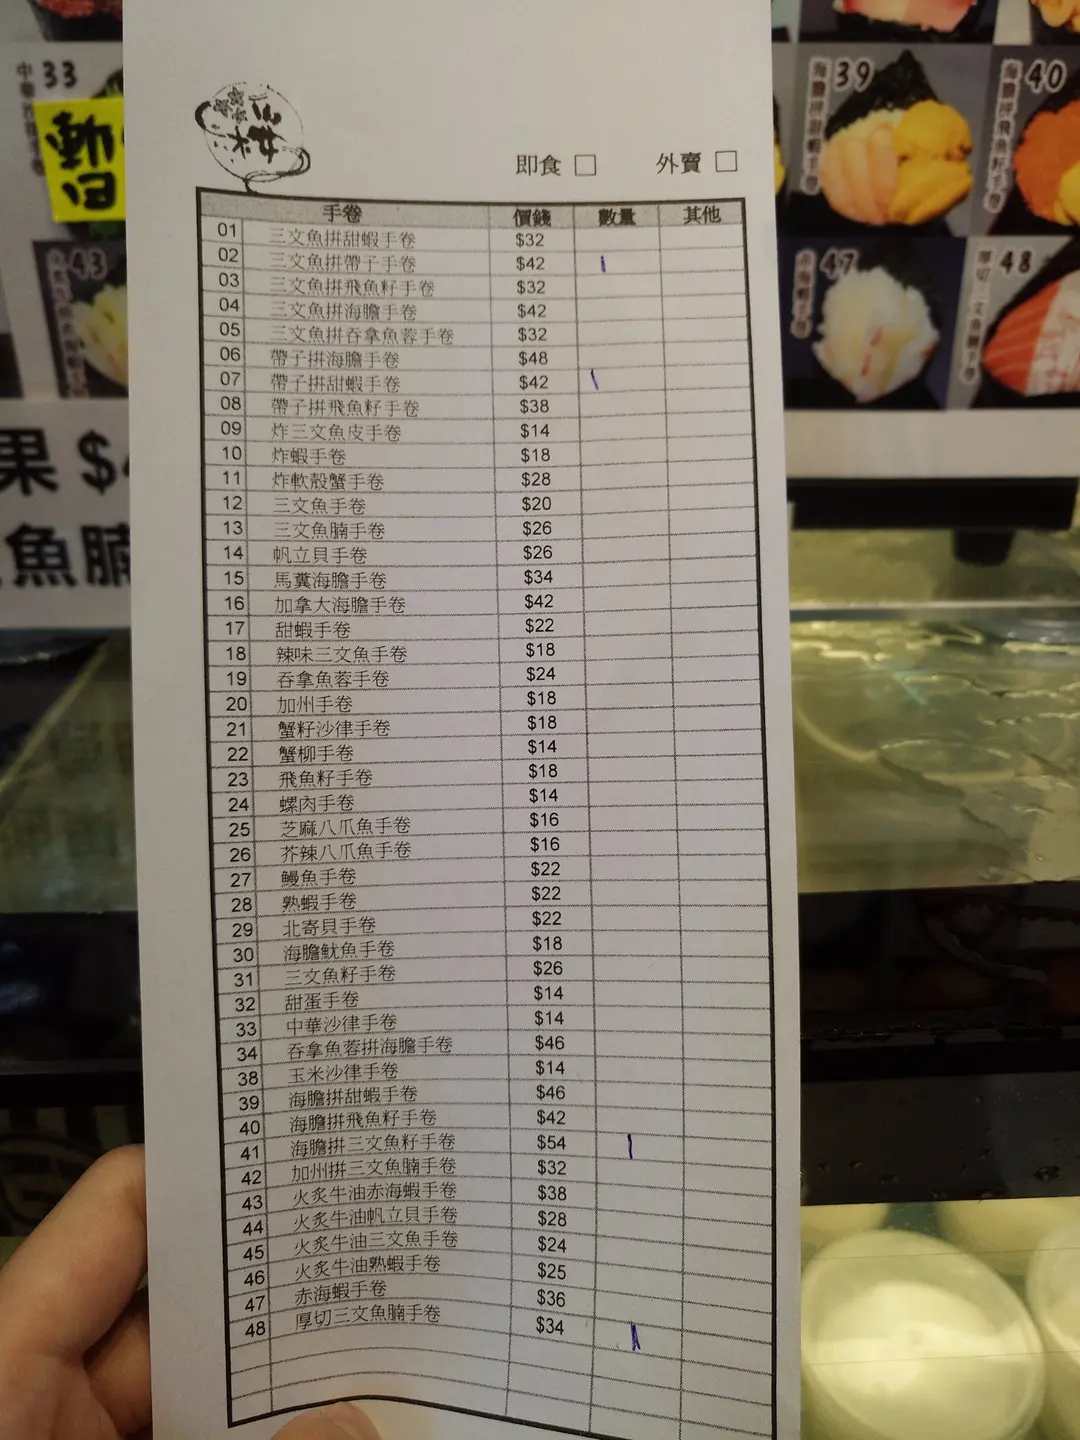 即食 □ 外賣 □
手卷 價錢 數量 其他
01 三文魚拼甜蝦手卷 $32
02 三文魚拼帶子手卷 $42 1
03 三文魚拼飛魚籽手卷 $32
04 三文魚拼海膽手卷 $42
05 三文魚拼吞拿魚蓉手卷 $32
06 帶子拼海膽手卷 $48
07 帶子拼甜蝦手卷 $42 1
08 帶子拼飛魚籽手卷 $38
09 炸三文魚皮手卷 $14
10 炸蝦手卷 $18
11 炸軟殼蟹手卷 $28
12 三文魚手卷 $20
13 三文魚腩手卷 $26
14 帆立貝手卷 $26
15 馬糞海膽手卷 $34
16 加拿大海膽手卷 $42
17 甜蝦手卷 $22
18 辣味三文魚手卷 $18
19 吞拿魚蓉手卷 $24
20 加州手卷 $18
21 蟹籽沙律手卷 $18
22 蟹柳手卷 $14
23 飛魚籽手卷 $18
24 螺肉手卷 $14
25 芝麻八爪魚手卷 $16
26 芥辣八爪魚手卷 $16
27 鰻魚手卷 $22
28 熟蝦手卷 $22
29 北寄貝手卷 $22
30 海膽魷魚手卷 $18
31 三文魚籽手卷 $26
32 甜蛋手卷 $14
33 中華沙律手卷 $14
34 吞拿魚蓉拼海膽手卷 $46
38 玉米沙律手卷 $14
39 海膽拼甜蝦手卷 $46
40 海膽拼飛魚籽手卷 $42
41 海膽拼三文魚籽手卷 $54 1
42 加州拼三文魚腩手卷 $32
43 火炙牛油赤海蝦手卷 $38
44 火炙牛油帆立貝手卷 $28
45 火炙牛油三文魚手卷 $24
46 火炙牛油熟蝦手卷 $25
47 赤海蝦手卷 $36
48 厚切三文魚腩手卷 $34 1
33
43
果 $
魚腩
39 海膽拼甜蝦手卷
40 海膽拼飛魚籽手卷
47 赤海蝦手卷
48 厚切三文魚腩手卷